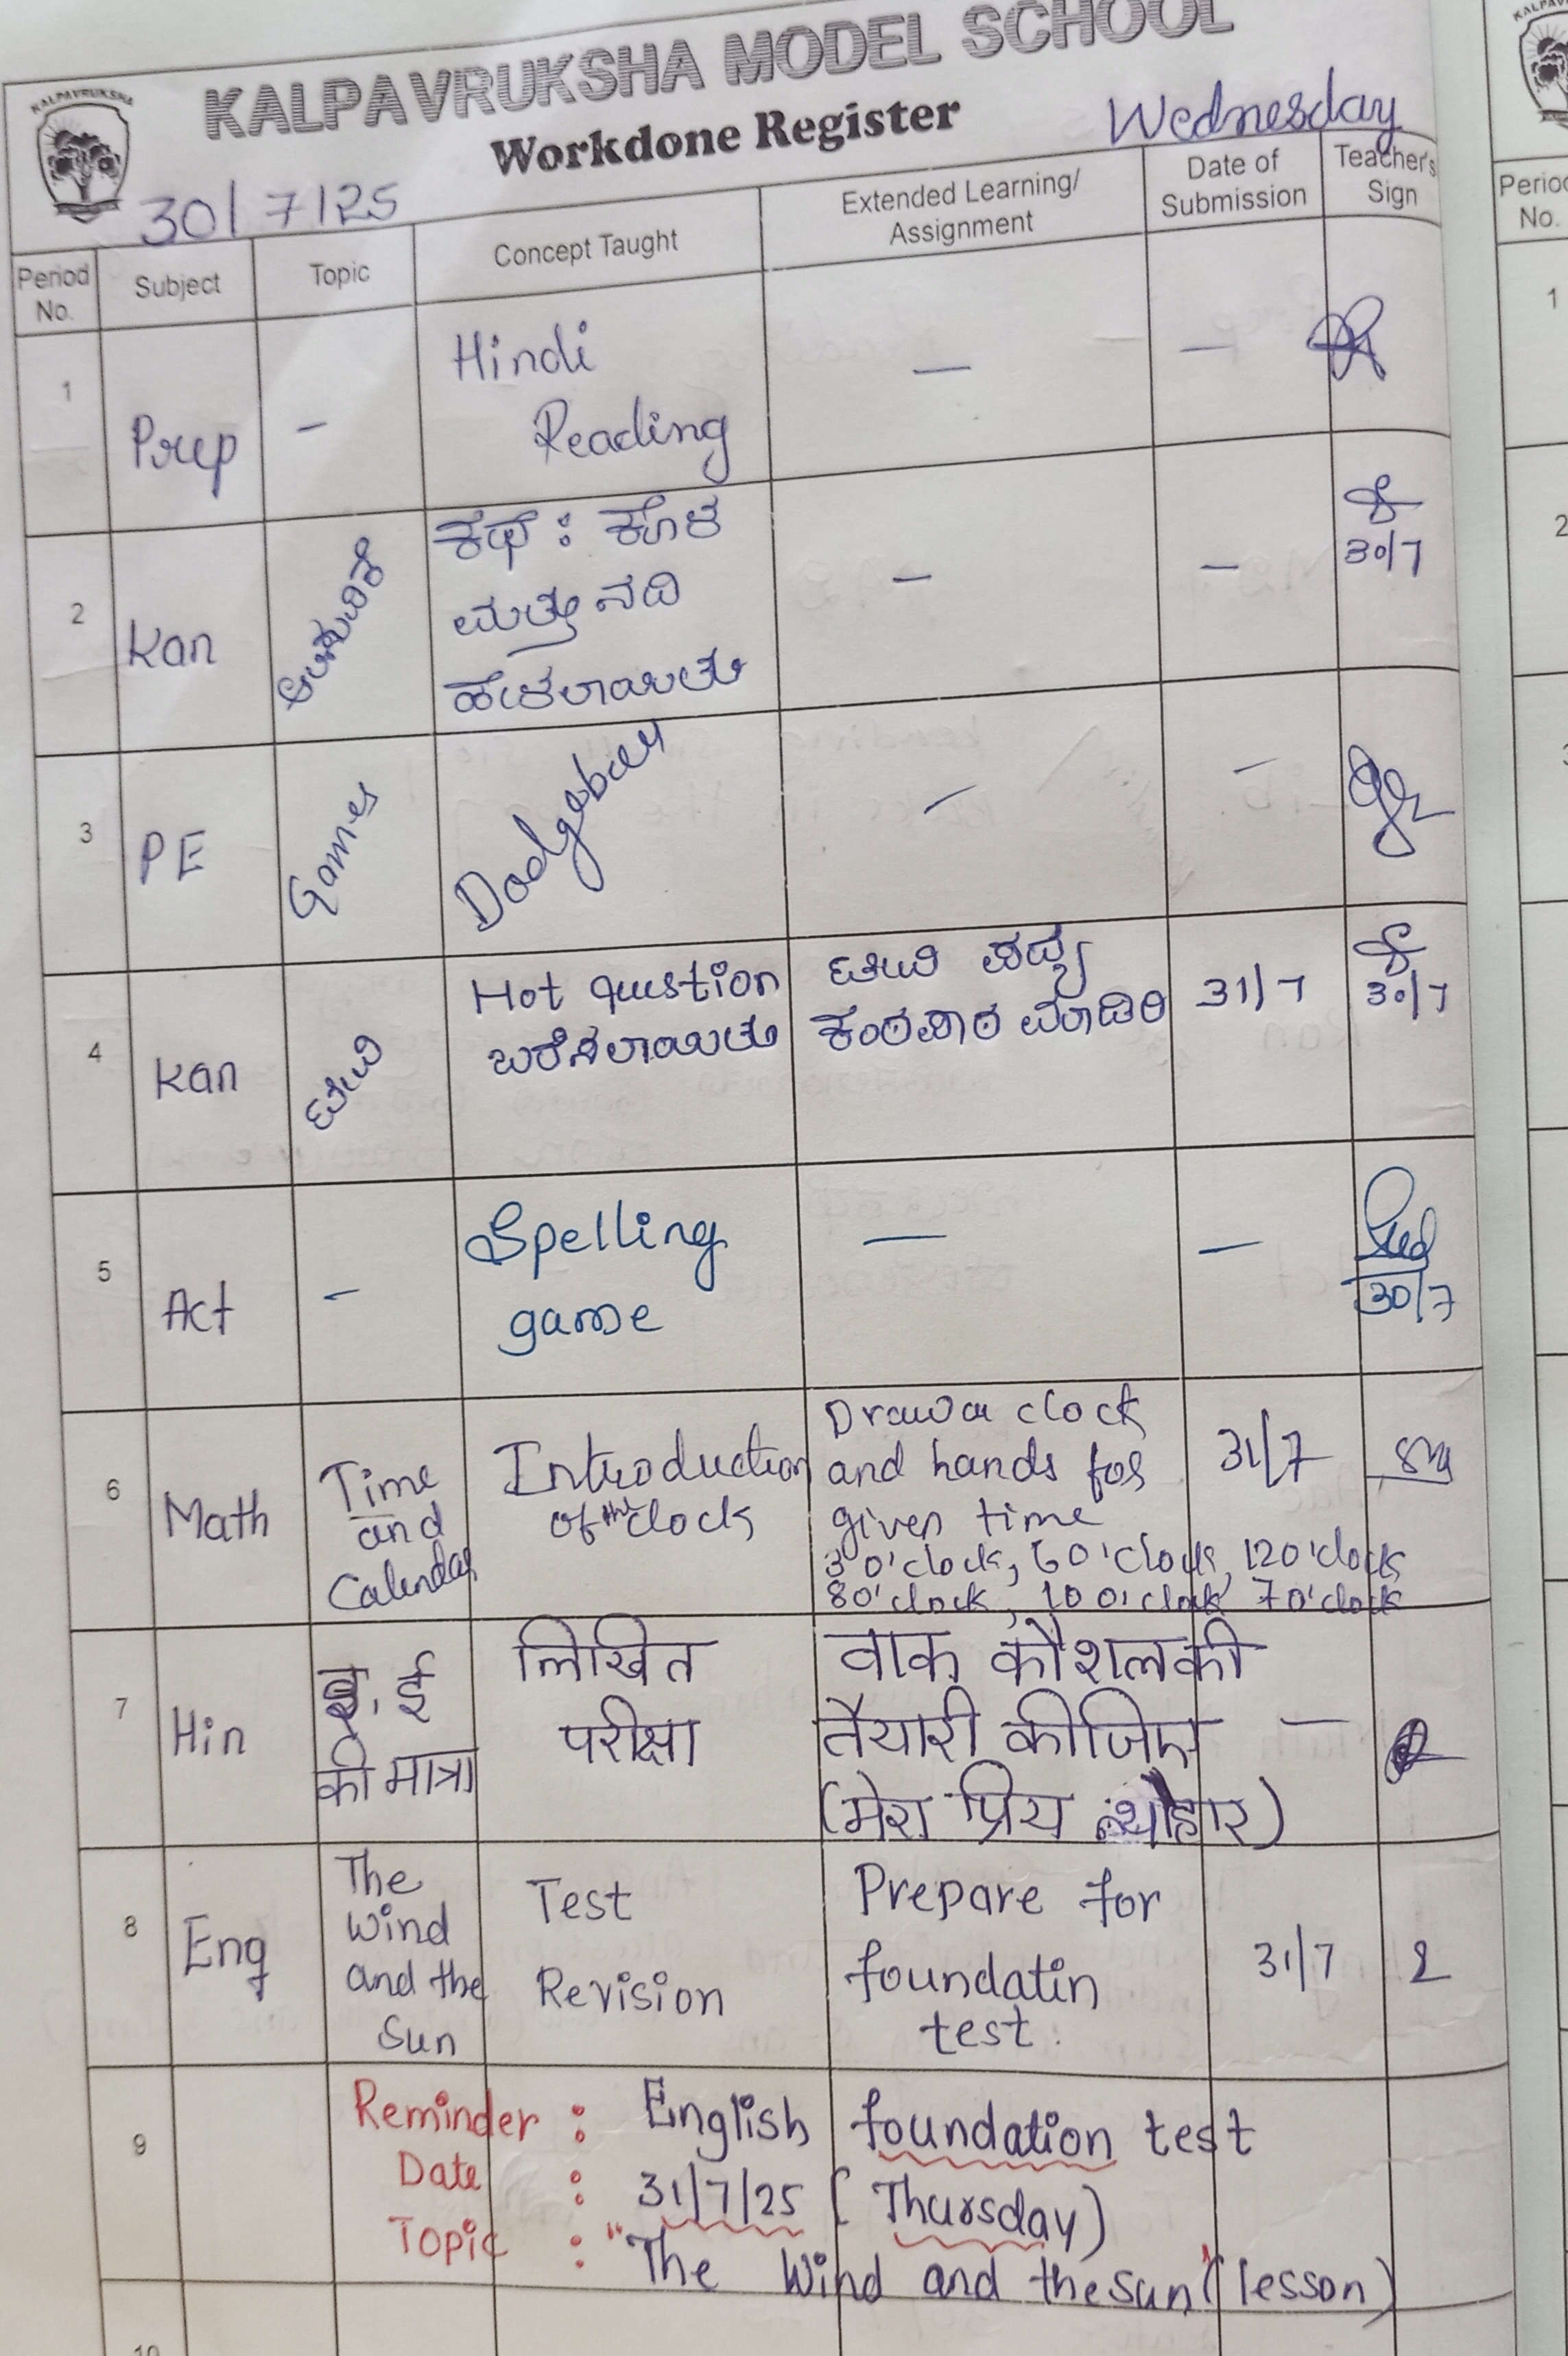 KALPAVRUKSHA
KALPAVRUKSHA MODEL SCHOOL
Workdone Register
Wednesday
30/7/25
Period No.
Subject
Topic
Concept Taught
Extended Learning/
Assignment
Date of
Submission
Teacher's
Sign
1
Prep
-
Hindi
Reading
—
—
2
Kan
ಕಥೆ : ಕೊಳ
ಮತ್ತು ನದಿ
ಹೇಳಲಾಯಿತು
—
—
30/7
3
PE
Games
Dodgeball
—
—
4
Kan
Hot question
ಬರೆಸಲಾಯಿತು
ಪದ್ಯ
ಕಂಠಪಾಠ ಮಾಡಿರಿ
31/7
30/7
5
Act
-
Spelling
game
—
—
30/7
6
Math
Time
and
Calendar
Introduction
of the clock
Draw a clock
and hands for
given time
3 o'clock, 6 o'clock, 12 o'clock
8 o'clock, 10 o'clock 7 o'clock
31/7
7
Hin
ई
की मात्रा
लिखित
परीक्षा
वाक् कौशल की
तैयारी कीजिए
(मेरा प्रिय त्यौहार)
—
8
Eng
The
Wind
and the
Sun
Test
Revision
Prepare for
foundatin
test.
31/7
9
Reminder : English foundation test
Date : 31/7/25 (Thursday)
Topic : "The Wind and the Sun" (lesson)
10
Period
No.
1
2
3